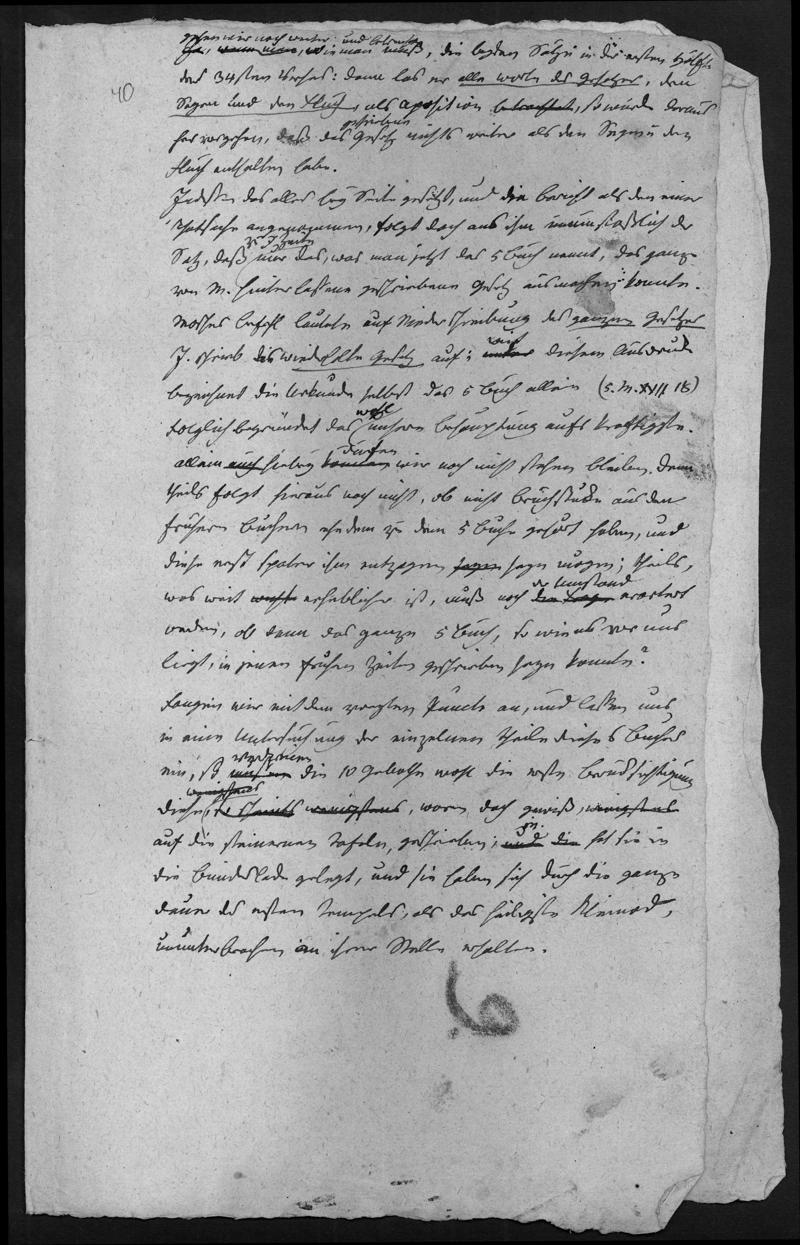 40
gehen wir noch weiter und betrachten
wie man muß, die beyden Sätze in der ersten Hälfte
des 34sten Verses: denn las er alle worte des Gesetzes, den
Segen und den Fluch, als aposition betrachtet, so würde daraus
hervorgehen, daß das geschriebene Gesetz nichts weiter als den Segen u den
Fluch enthalten habe.
Indessen das alles bey Seite gesetzt, und die Bericht als den einer
Thatsache angenommen, folgt doch aus ihm unumstößlich der
Satz, daß zu J. Zeiten nur das, was man jetzt das 5 Buch nennt, das ganze
von M. hinterlassene geschriebene Gesetz ausmachen konnte.
Moses befehl lautete auf Niederschreibung des ganzen Gesetzes
J. schrieb das wiederholte Gesetz auf; mit diesem Ausdruck
bezeichnet die Urkunde selbst das 5 Buch allein (5. M. XVII 18)
Folglich begründet das wohl unsere Behauptung aufs kräftigste.
allein hiebey dürfen wir noch nicht stehen bleiben. Denn
theils folgt hieraus noch nicht, ob nicht Bruchstücke aus den
frühern Büchern ehedem zu dem 5 Buche gehört haben, und
diese erst später ihm entzogen seyn mögen; theils,
was weit erheblicher ist, muß noch der Umstand erörtert
werden, ob denn das ganze 5 Buch, so wie es vor uns
liegt, in jenen frühen Zeiten geschrieben seyn konnte?
Fangen wir mit dem zweyten Puncte an, und lassen uns
in eine Untersuchung der einzelnen Theile dieses Buches
ein, so verdienen die 10 Gebothe wohl die erste Berücksichtigung
diese, waren doch gewiß, wenigstens
auf die steinernen Tafeln, geschrieben; hat sie in
die Bundeslade gelegt, und sie haben sich durch die ganze
dauer des ersten Tempels, als das heiligste Kleinod,
ununterbrochen an ihrer Stelle erhalten.